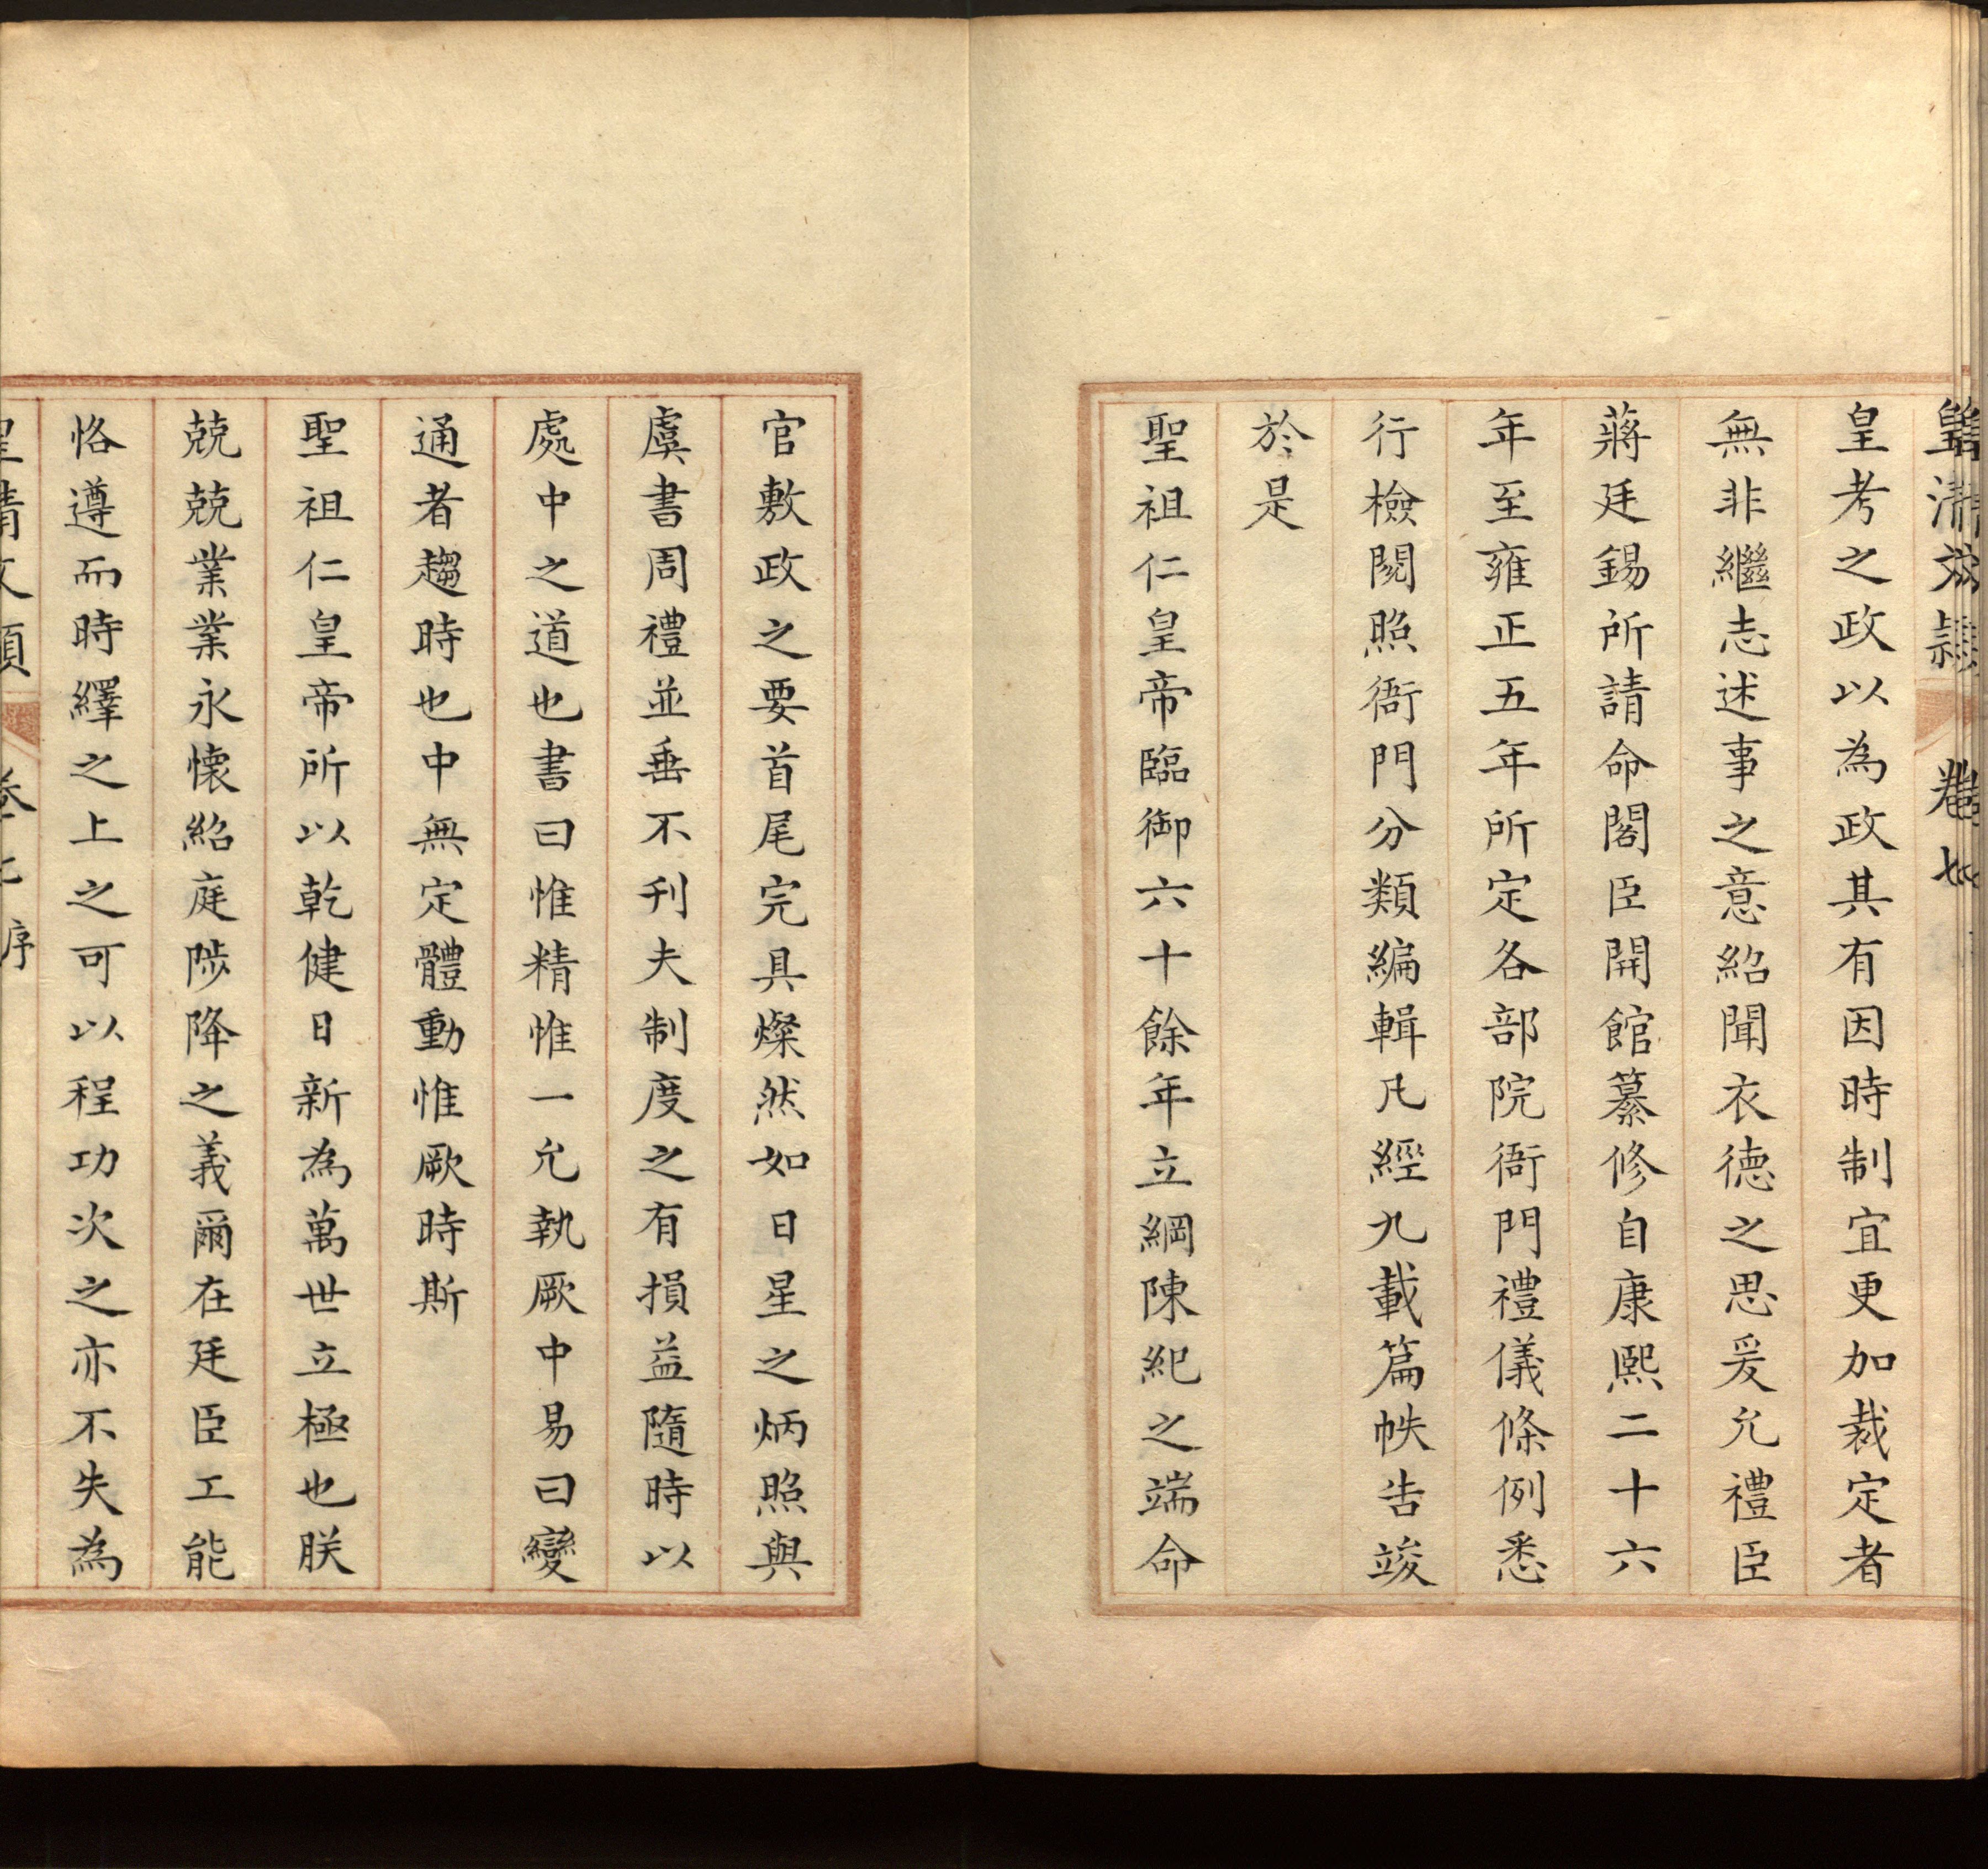 皇考之政以為政其有因時制宜更加裁定者
無非繼志述事之意紹聞衣德之思爰允禮臣
蔣廷錫所請命閣臣開館纂修自康熙二十六
年至雍正五年所定各部院衙門禮儀條例悉
行檢閱照衙門分類編輯凡經九載篇帙告竣
於是
聖祖仁皇帝臨御六十餘年立綱陳紀之端命
官敷政之要首尾完具燦然如日星之炳照與
虞書周禮並垂不刋夫制度之有損益隨時以
處中之道也書曰惟精惟一允執厥中易曰變
通者趨時也中無定體動惟厥時斯
聖祖仁皇帝所以乾健日新為萬世立極也朕
兢兢業業永懷紹庭陟降之義爾在廷臣工能
恪遵而時繹之上之可以程功次之亦不失為